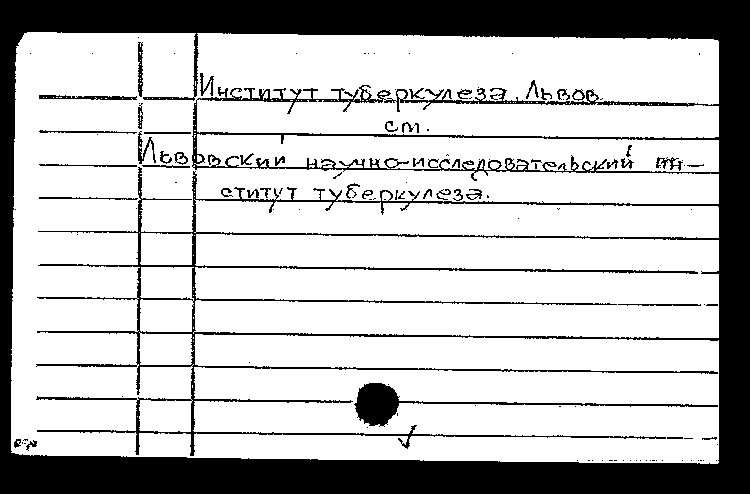 Институт туберкулеза. Львов
см.
Львовский научно-исследовательский ин-
ститут туберкулеза.